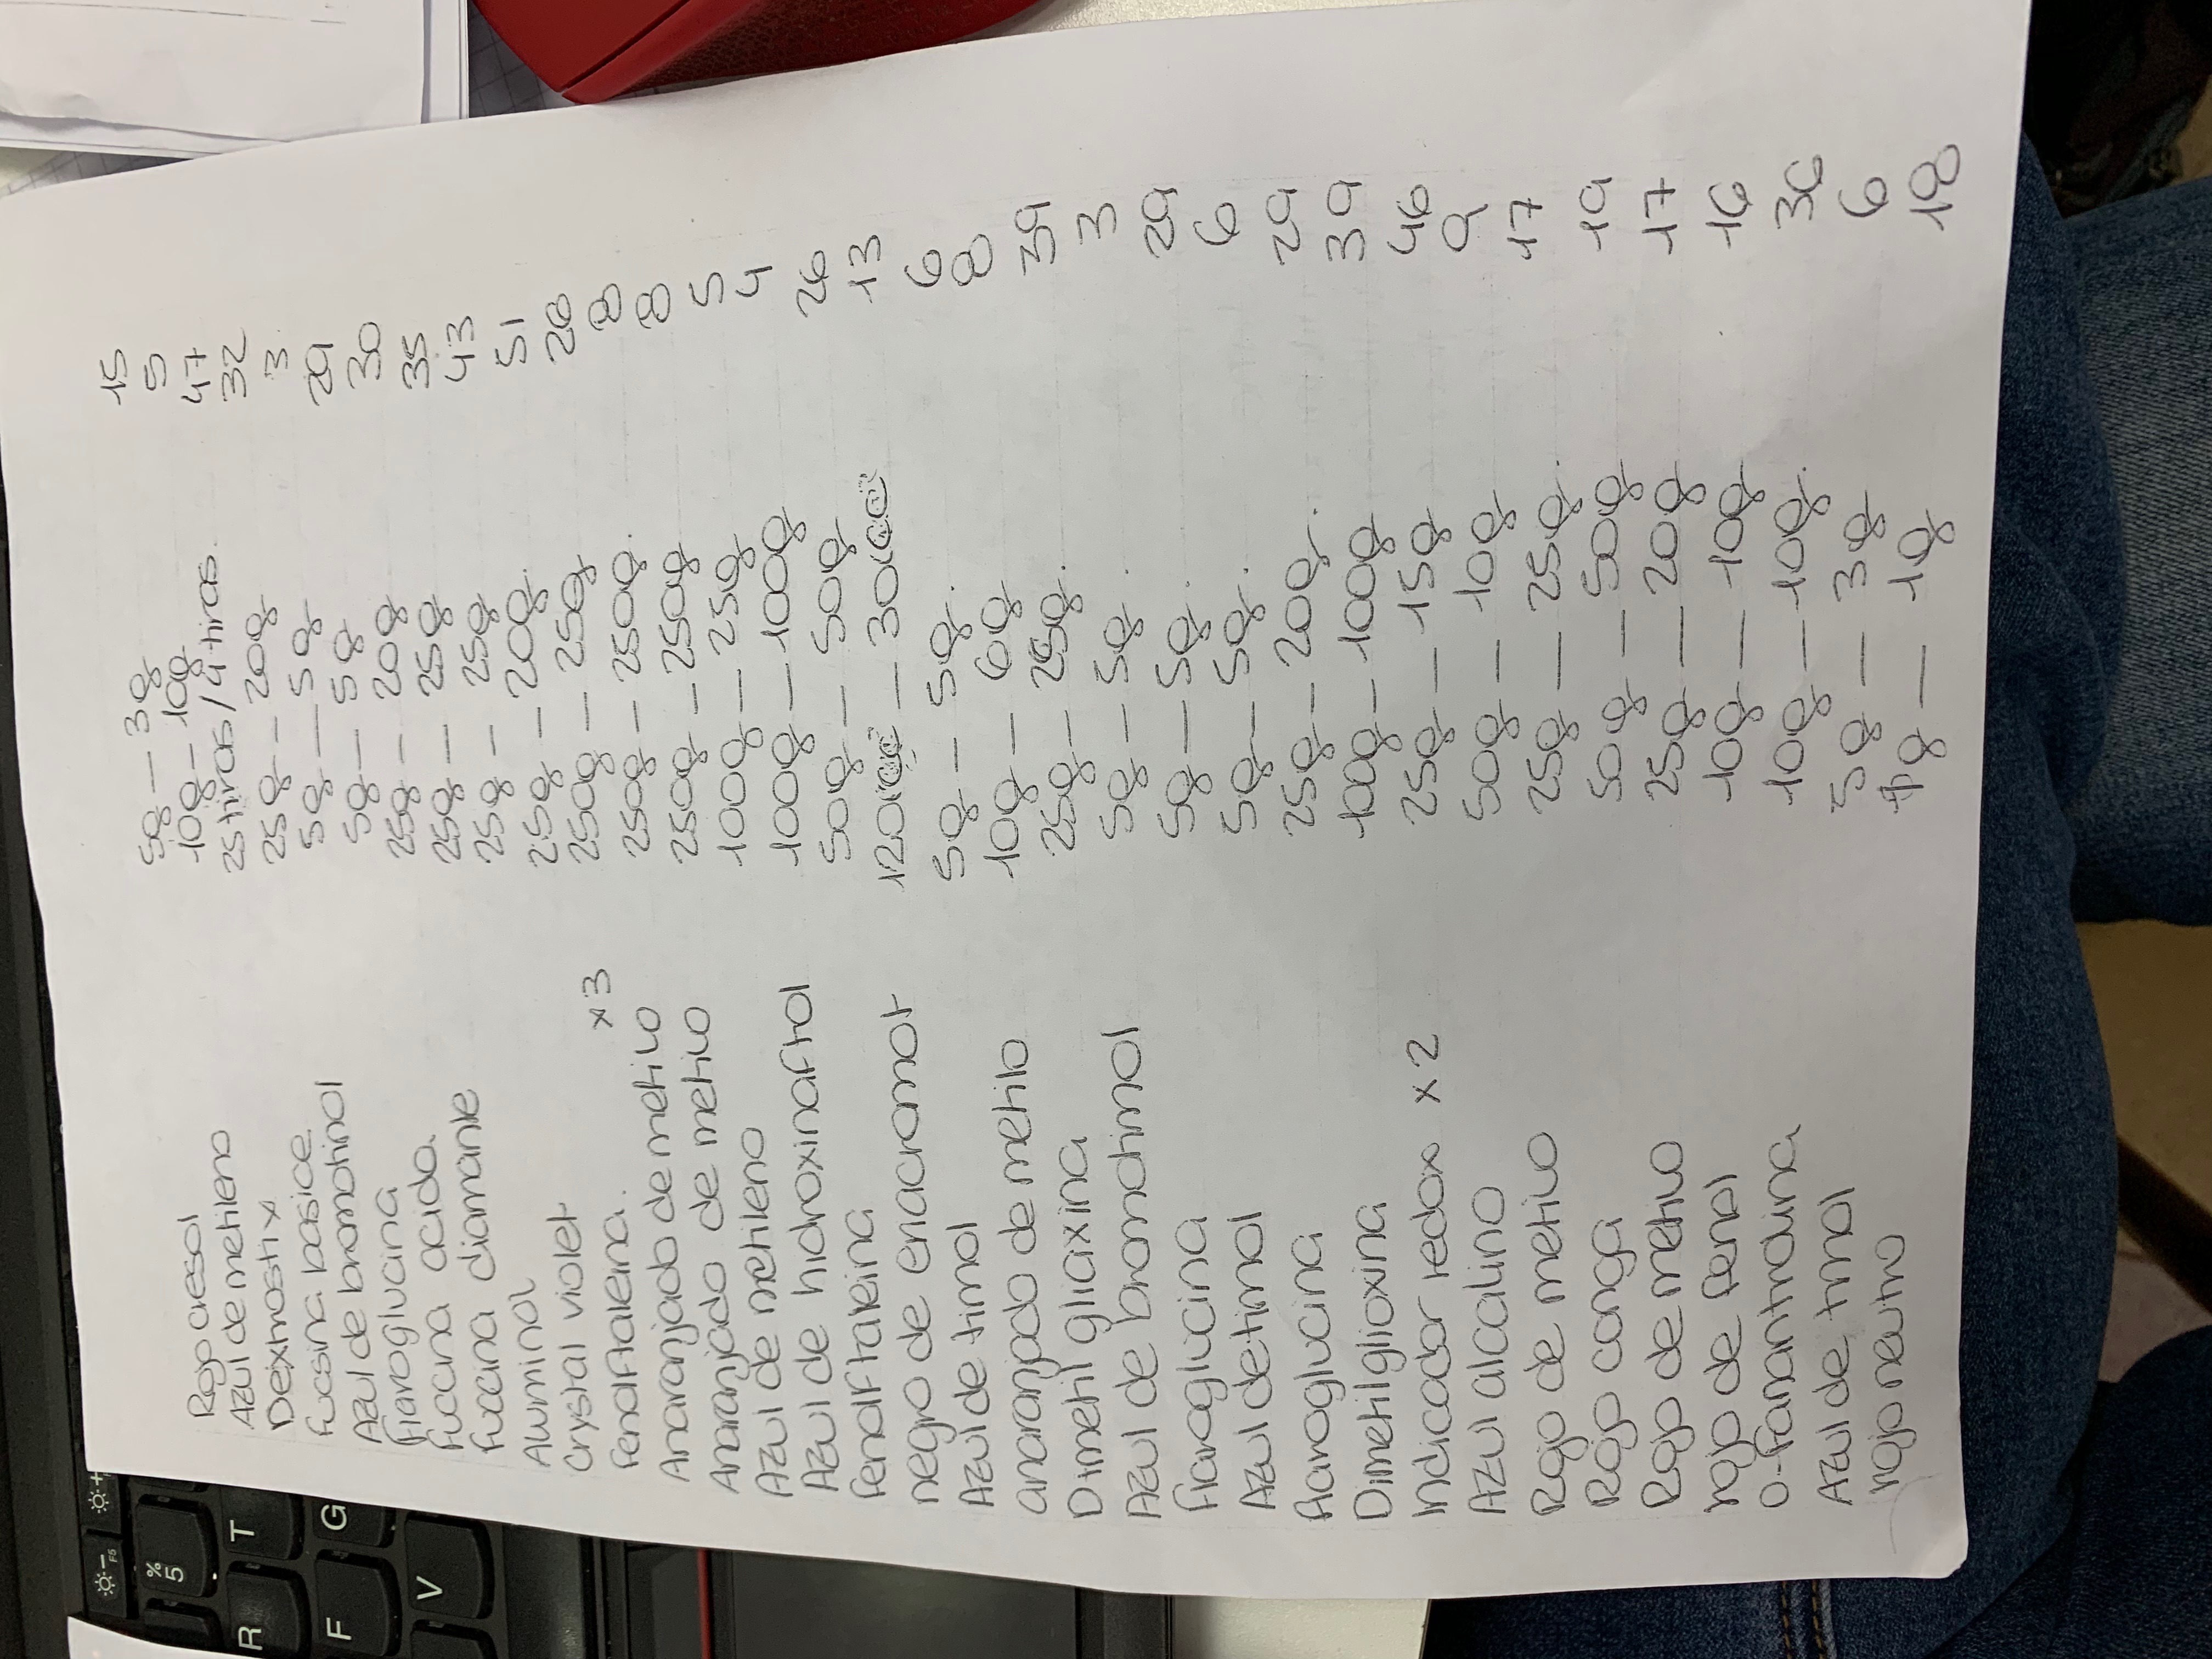 F5
%
5
R
T
F
G
V
Rojo cresol 5g — 3g 15
Azul de metileno 10g — 10g 5
Dextrostix 25 tiras / 4 tiras. 47
Fucsina basice 25g — 20g 32
Azul de bromotinol 5g — 5g 3
Fiaroglucina 5g — 5g 29
Fuccina acida 25g — 20g 30
Fuccina diamante 25g — 25g 35
Aluminol 25g — 25g 43
Crystal violet 25g — 20g. 51
Fenolftaleina. x3 250g — 25g 26
Anaranjado de metilo 250g — 250g. 8
Anaranjado de metilo 250g — 250g 8
Azul de metileno 100g — 25g 5
Azul de hidroxinaftol 100g — 100g 4
Fenolftaleina 50g — 50g 26
negro de eriacromot 120cc — 30cc 13
Azul de timol 5g — 5g. 6
anaranjado de metilo 10g — 6g 8
Dimetil gliaxina 25g — 25g. 39
Azul de bromotimol 5g — 5g. 3
Fiaroglucina 5g — 5g. 29
Azul de timol 5g — 5g. 6
Fiaroglucina 25g — 20g. 29
Dimetilglioxina 100g — 100g 39
Indicador redox x2 25g — 15g 46
Azul alcalino 50g — 10g 9
Rojo de metilo 25g — 25g. 17
Rojo conga 50g — 50g 19
Rojo de metilo 25g — 20g 17
rojo de fenol 10g — 10g 16
O-Fanantrolina 10g — 10g. 36
Azul de timol 5g — 3g 6
rojo neutro g — 1g 18